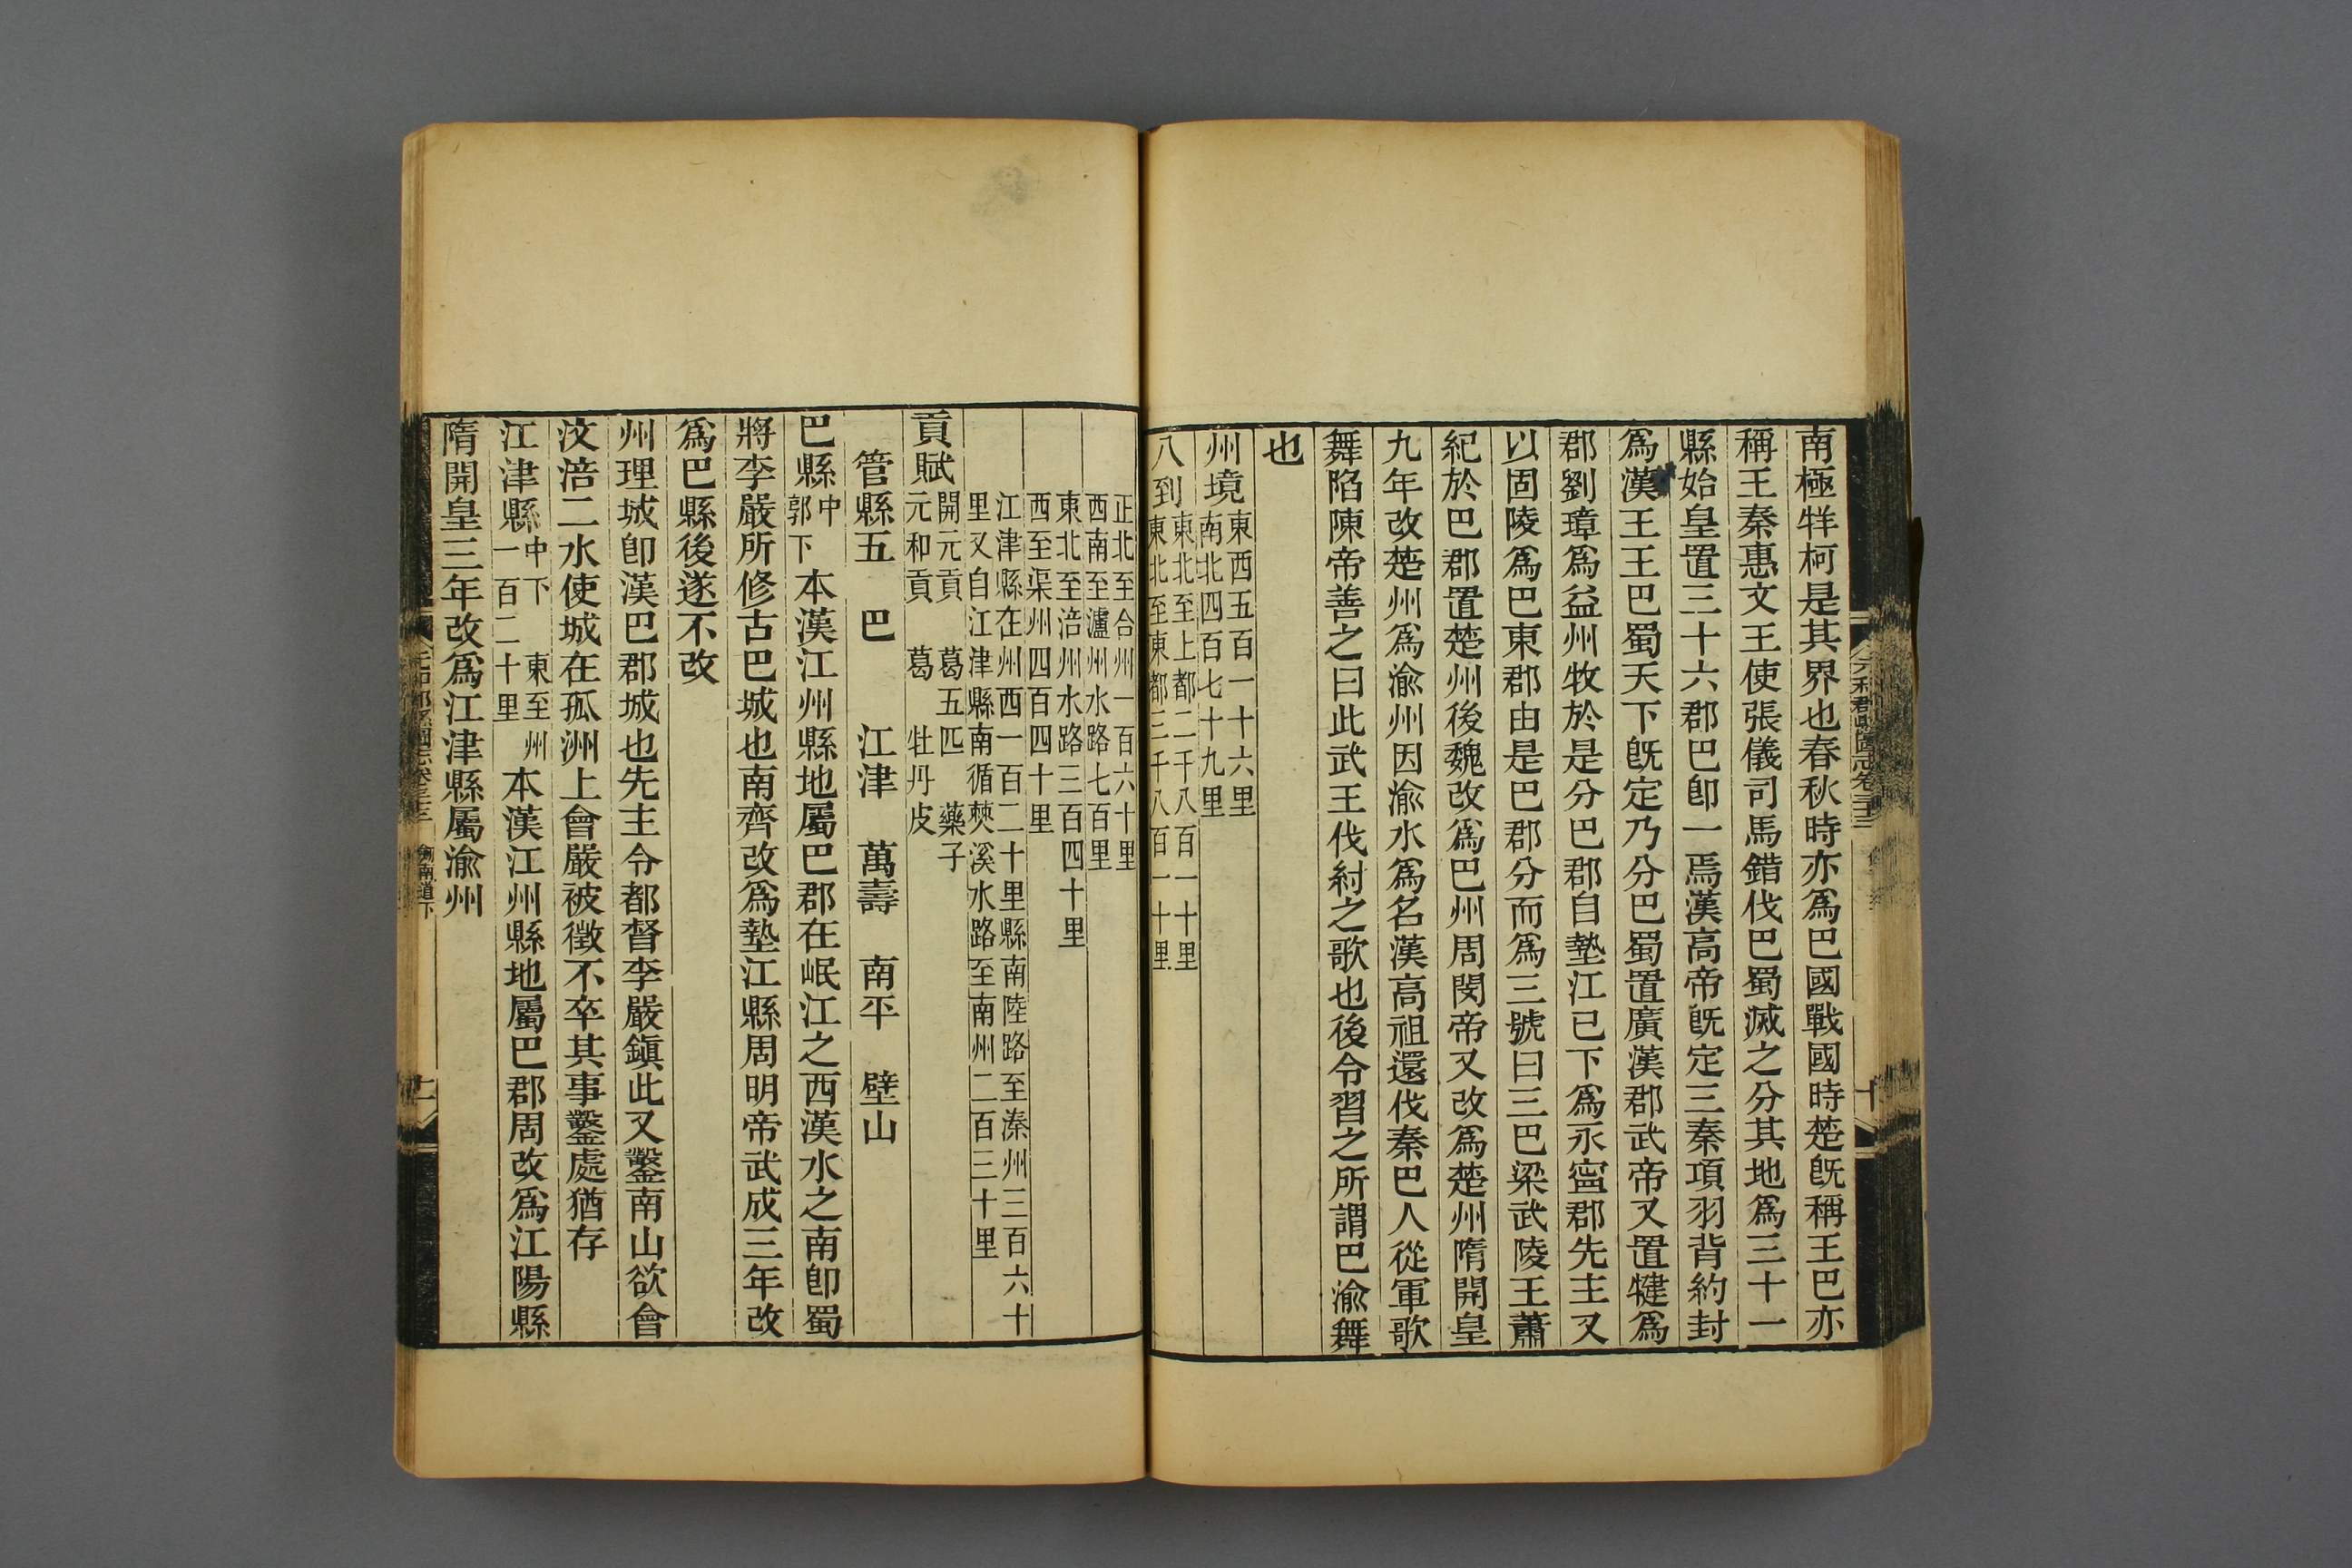 南極牂柯是其界也春秋時亦爲巴國戰國時楚旣稱王巴亦
稱王秦惠文王使張儀司馬錯伐巴蜀滅之分其地爲三十一
縣始皇置三十六郡巴卽一焉漢高帝旣定三秦項羽背約封
爲漢王王巴蜀天下旣定乃分巴蜀置廣漢郡武帝又置犍爲
郡劉璋爲益州牧於是分巴郡自墊江已下爲永寧郡先主又
以固陵爲巴東郡由是巴郡分而爲三號曰三巴梁武陵王蕭
紀於巴郡置楚州後魏改爲巴州周閔帝又改爲楚州隋開皇
九年改楚州爲渝州因渝水爲名漢高祖還伐秦巴人從軍歌
舞陷陳帝善之曰此武王伐紂之歌也後令習之所謂巴渝舞
也
州境東西五百一十六里
南北四百七十九里
八到東北至上都二千八百一十里
東北至東都三千八百一十里
正北至合州一百六十里
西南至瀘州水路七百里
東北至涪州水路三百四十里
西至渠州四百四十里
江津縣在州西一百二十里縣南陸路至溱州三百六十
里又自江津縣南循僰溪水路至南州二百三十里
貢賦開元貢 葛五匹 藥子
元和貢 葛 牡丹皮
管縣五 巴 江津 萬壽 南平 壁山
巴縣中下
郭
本漢江州縣地屬巴郡在岷江之西漢水之南卽蜀
將李嚴所修古巴城也南齊改爲墊江縣周明帝武成三年改
爲巴縣後遂不改
州理城卽漢巴郡城也先主令都督李嚴鎭此又鑿南山欲會
汶涪二水使城在孤洲上會嚴被徵不卒其事鑿處猶存
江津縣中下 東至州
一百二十里
本漢江州縣地屬巴郡周改爲江陽縣
隋開皇三年改爲江津縣屬渝州
元和郡縣圖志卷三十三 劍南道下